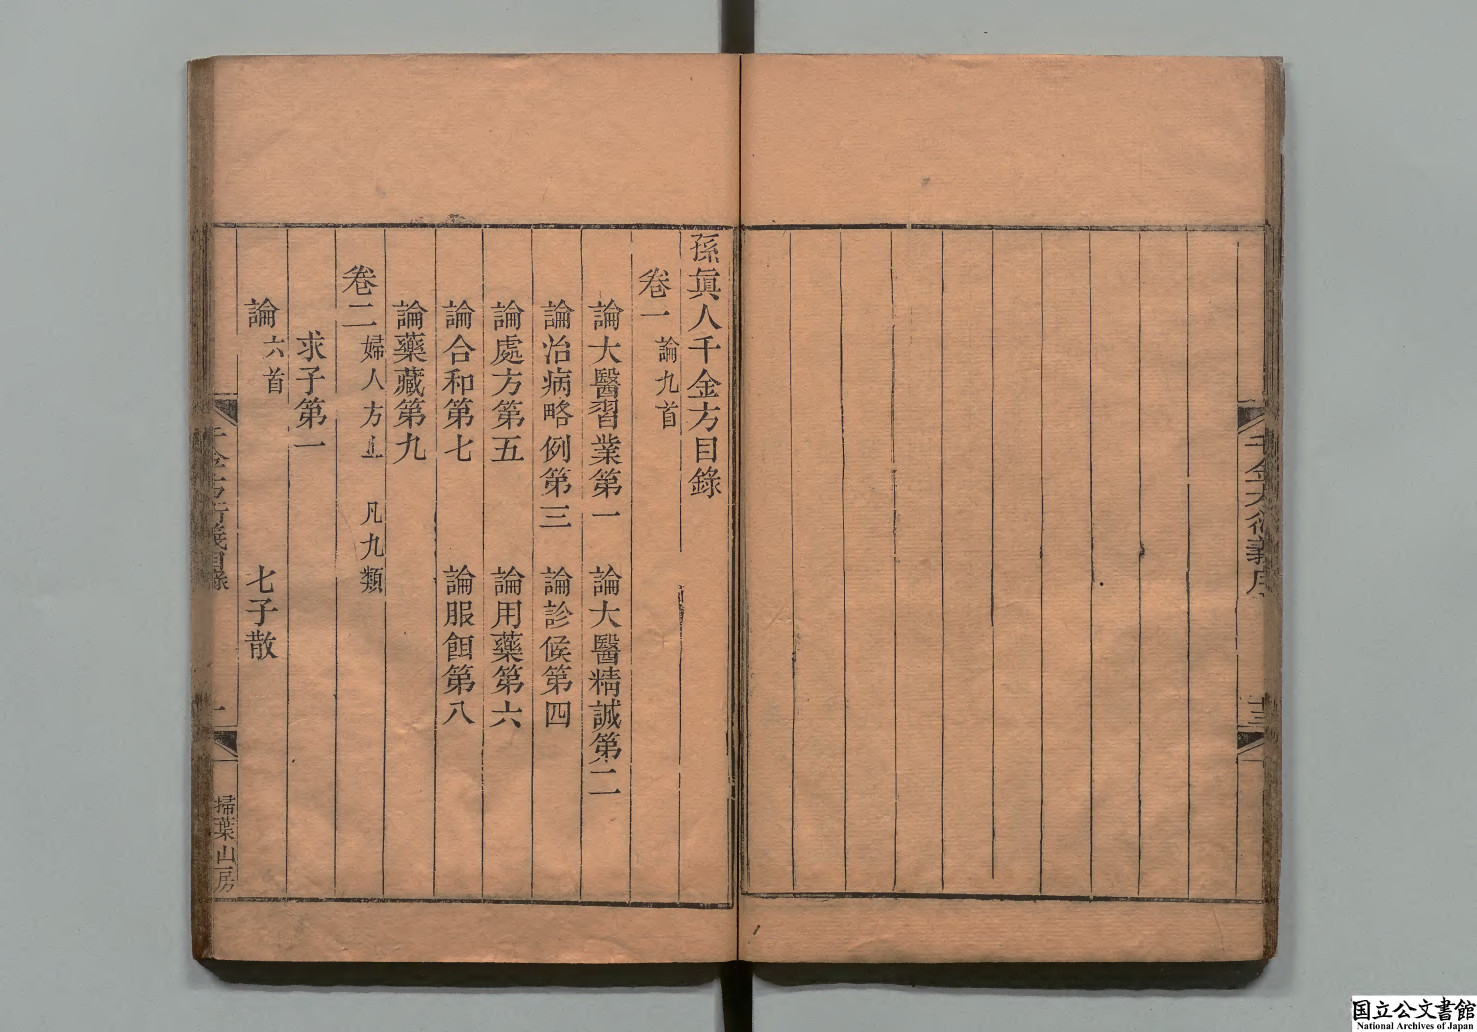 千金方衍義序
十三
孫眞人千金方目錄
卷一 論九首
論大醫習業第一 論大醫精誠第二
論治病略例第三 論診候第四
論處方第五 論用藥第六
論合和第七 論服餌第八
論藥藏第九
卷二 婦人方上 凡九類
求子第一
論六首 七子散
千金方衍義目錄
一
掃葉山房
国立公文書館
National Archives of Japan